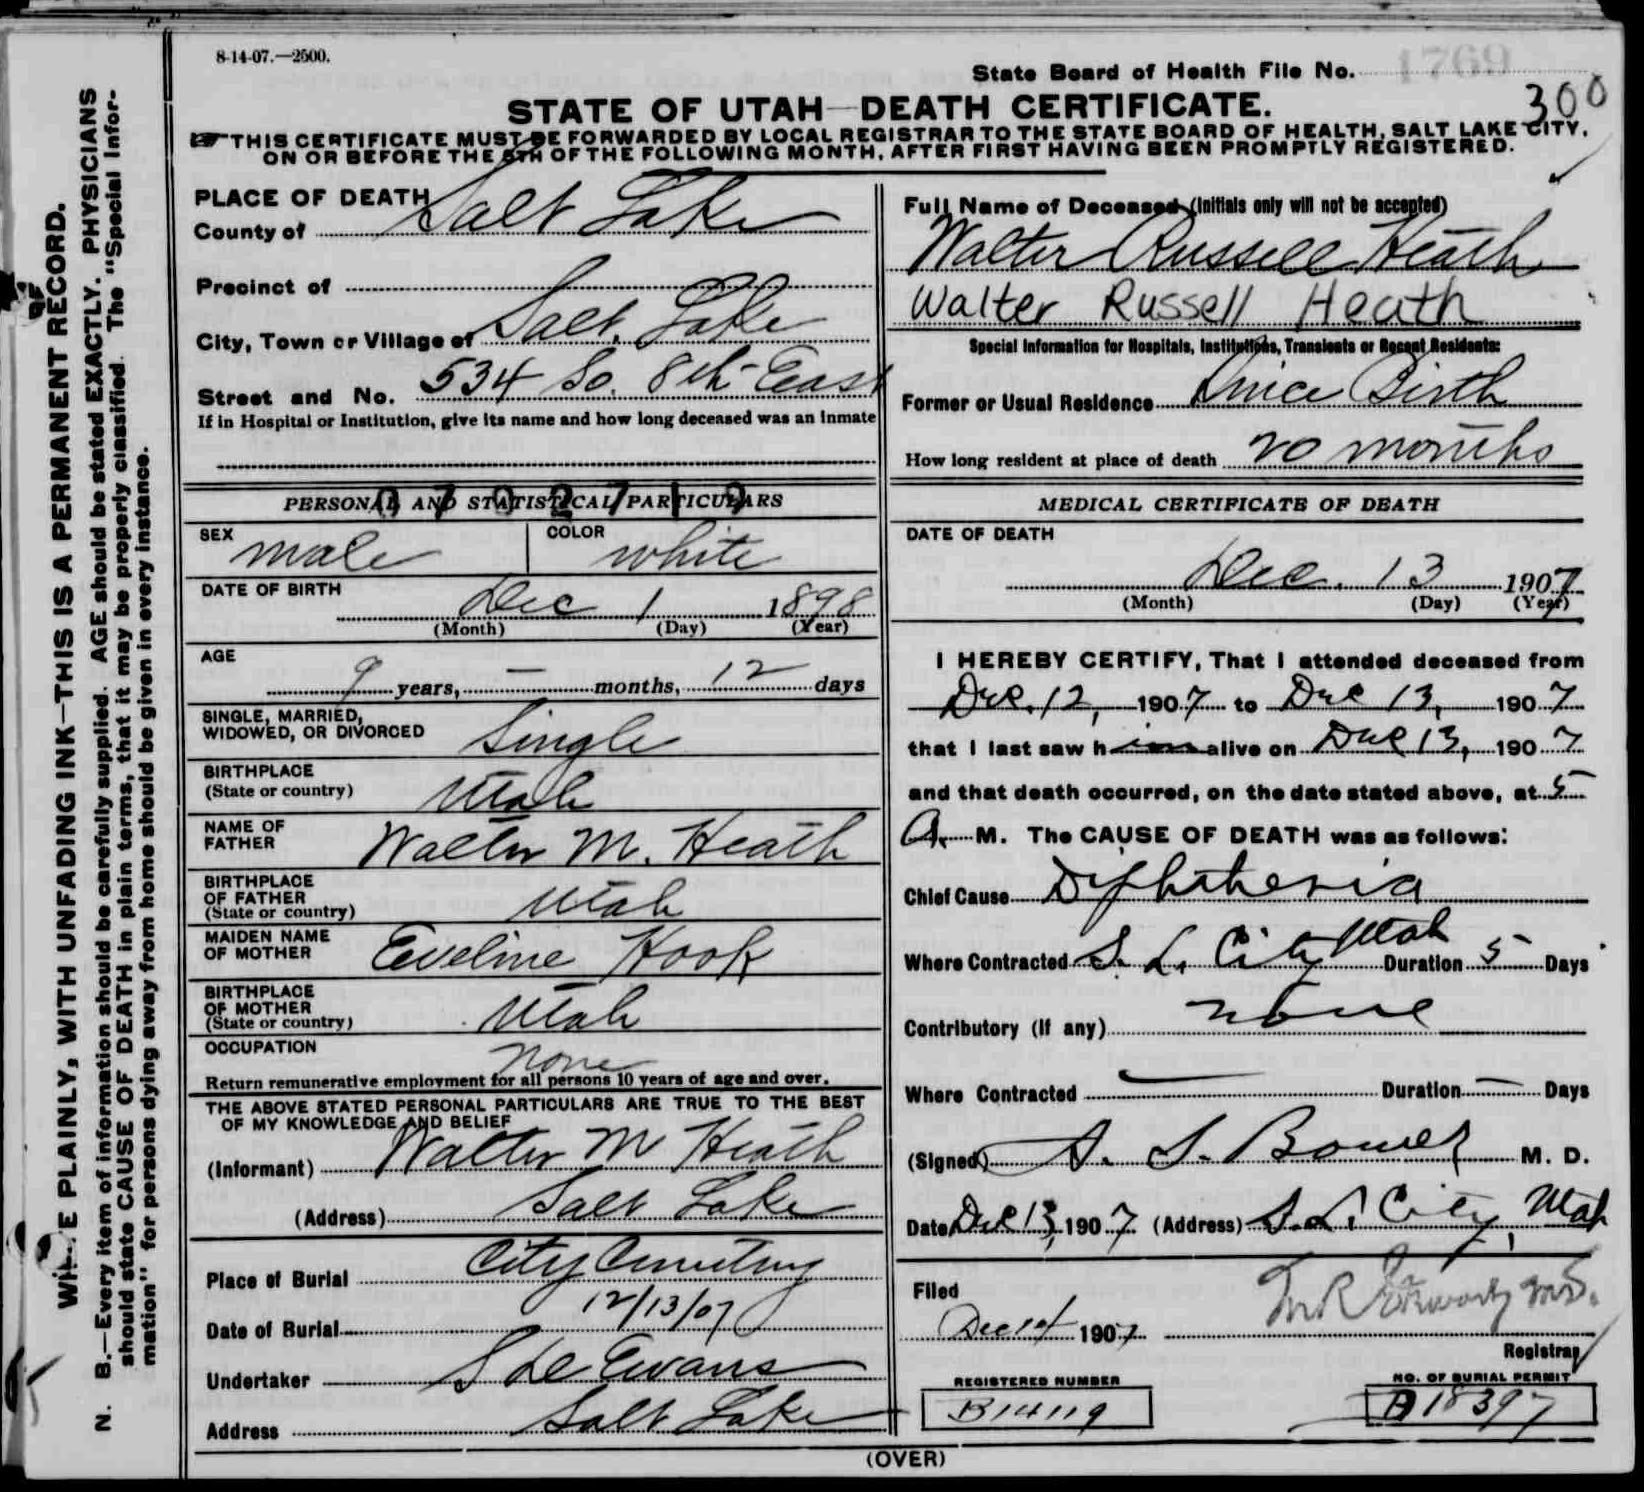 8-14-07.—2500.
State Board of Health File No. 1769
300
STATE OF UTAH—DEATH CERTIFICATE.
THIS CERTIFICATE MUST BE FORWARDED BY LOCAL REGISTRAR TO THE STATE BOARD OF HEALTH, SALT LAKE CITY,
ON OR BEFORE THE 5TH OF THE FOLLOWING MONTH, AFTER FIRST HAVING BEEN PROMPTLY REGISTERED.
PLACE OF DEATH
County of Salt Lake
Precinct of
City, Town or Village of Salt Lake
Street and No. 534 So. 8th East
If in Hospital or Institution, give its name and how long deceased was an Inmate
PERSONAL AND STATISTICAL PARTICULARS
SEX male COLOR white
DATE OF BIRTH Dec 1 1898
(Month) (Day) (Year)
AGE
9 years, — months, 12 days
SINGLE, MARRIED,
WIDOWED, OR DIVORCED Single
BIRTHPLACE
(State or country) Utah
NAME OF
FATHER Walter M. Heath
BIRTHPLACE
OF FATHER
(State or country) Utah
MAIDEN NAME
OF MOTHER Eveline Hook
BIRTHPLACE
OF MOTHER
(State or country) Utah
OCCUPATION none
Return remunerative employment for all persons 10 years of age and over.
THE ABOVE STATED PERSONAL PARTICULARS ARE TRUE TO THE BEST
OF MY KNOWLEDGE AND BELIEF
(Informant) Walter M Heath
(Address) Salt Lake
Place of Burial City Cemetery
Date of Burial 12/13/07
Undertaker S D Evans
Address Salt Lake
Full Name of Deceased (Initials only will not be accepted)
Walter Russell Heath
Walter Russell Heath
Special Information for Hospitals, Institutions, Transients or Recent Residents:
Former or Usual Residence Since Birth
How long resident at place of death 20 months
MEDICAL CERTIFICATE OF DEATH
DATE OF DEATH
Dec. 13 1907
(Month) (Day) (Year)
I HEREBY CERTIFY, That I attended deceased from
Dec. 12, 1907 to Dec 13, 1907
that I last saw him alive on Dec 13, 1907
and that death occurred, on the date stated above, at 5
A. M. The CAUSE OF DEATH was as follows:
Chief Cause Diphtheria
Where Contracted S. L. City Utah Duration 5 Days
Contributory (if any) none
Where Contracted — Duration — Days
(Signed) A. S. Bower M. D.
Date Dec 13, 1907 (Address) S. L. City, Utah
Filed
Dec 14 1907
Registrar
REGISTERED NUMBER
B14119
NO. OF BURIAL PERMIT
B18397
(OVER)
WRITE PLAINLY, WITH UNFADING INK—THIS IS A PERMANENT RECORD.
N. B.—Every item of information should be carefully supplied. AGE should be stated EXACTLY. PHYSICIANS
should state CAUSE OF DEATH in plain terms, that it may be properly classified. The "Special Infor-
mation" for persons dying away from home should be given in every instance.